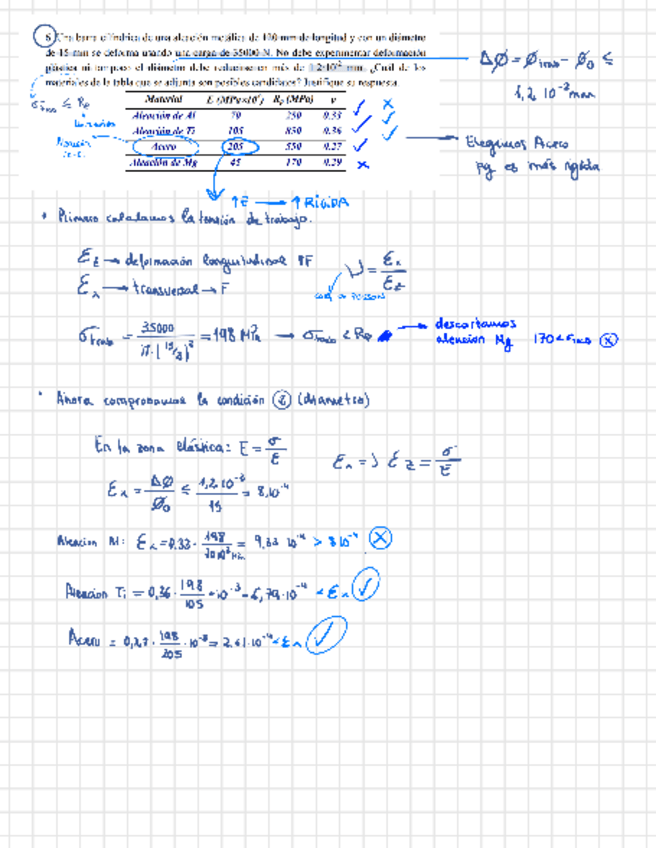 6. Una barra cilíndrica de una aleación metálica de 120 mm de longitud y con un diámetro
de 15 mm se deforma usando una carga de 35000 N. No debe experimentar deformación
plástica ni tampoco el diámetro debe reducirse en más de 1.2·10⁻² mm. ¿Cuál de los
materiales de la tabla que se adjunta son posibles candidatos? Justifique su respuesta.
Δø = ø - ø₀ ≤
1,2 10⁻² mm
Material E (MPa×10³) Rp (MPa) ν
Aleación de Al 70 250 0.33
Aleación de Ti 105 850 0.36
Acero 205 550 0.27
Aleación de Mg 45 170 0.29
Elegimos Acero
pq es más rígida
↑E → ↑RIGIDA
• Primero calculamos la tensión de trabajo.
Ez → deformación longitudinal
Ex → transversal → F
ν = Ex/Ez
σtrab = 35000/π·(15/2)² = 198 MPa → σtrab < Rp → descartamos
aleacion Mg 170 < σtrab ⓧ
• Ahora comprobamos la condición ② (diametro)
En la zona elástica: E = σ/ε
Ex = ν Ez = σ/E
Ex = Δø/ø₀ ≤ 1,2·10⁻²/15 = 8·10⁻⁴
Aleacion Al: Ex = 0,33 · 198/70·10³ = 9,33 10⁻⁴ > 8 10⁻⁴ ⓧ
Aleacion Ti = 0,36 · 198/105 · 10⁻³ = 6,79·10⁻⁴ < Ex ✓
Acero = 0,27 · 198/205 · 10⁻³ = 2,61·10⁻⁴ < Ex ✓